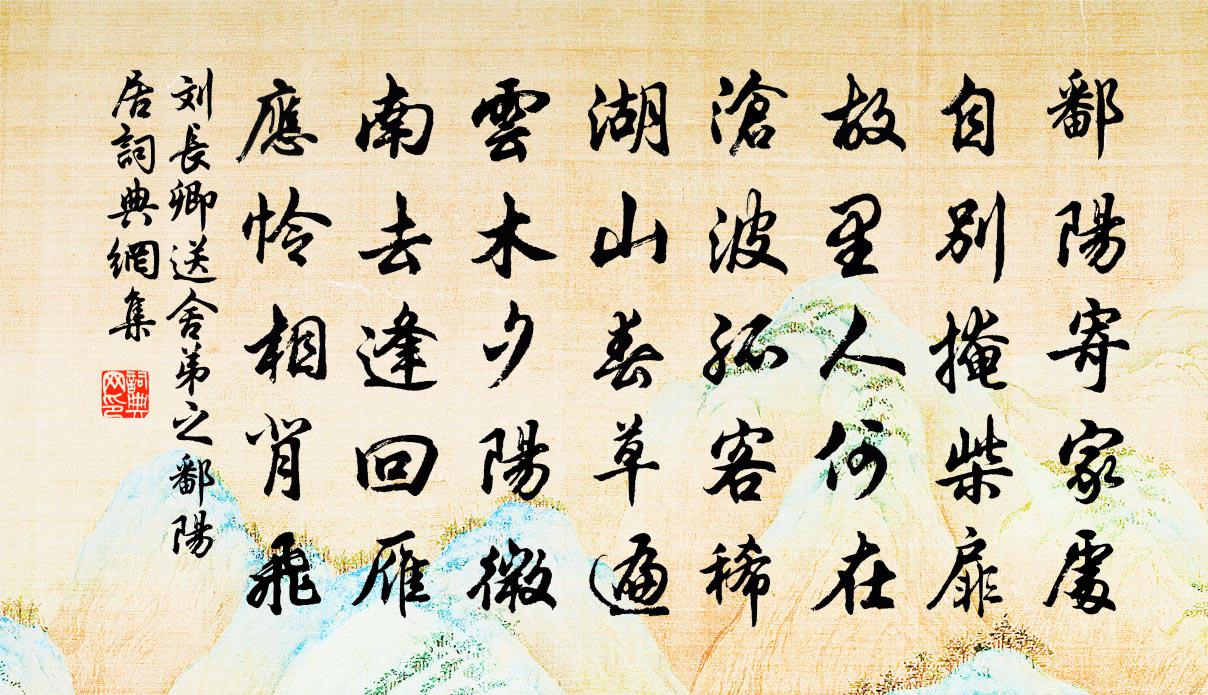 鄱陽寄家處
自別掩柴扉
故里人何在
滄波孤客稀
湖山春草遍
雲木夕陽微
南去逢回雁
應怜相背飛
刘長卿送舍弟之鄱陽
居詞典網集
詞典
网印